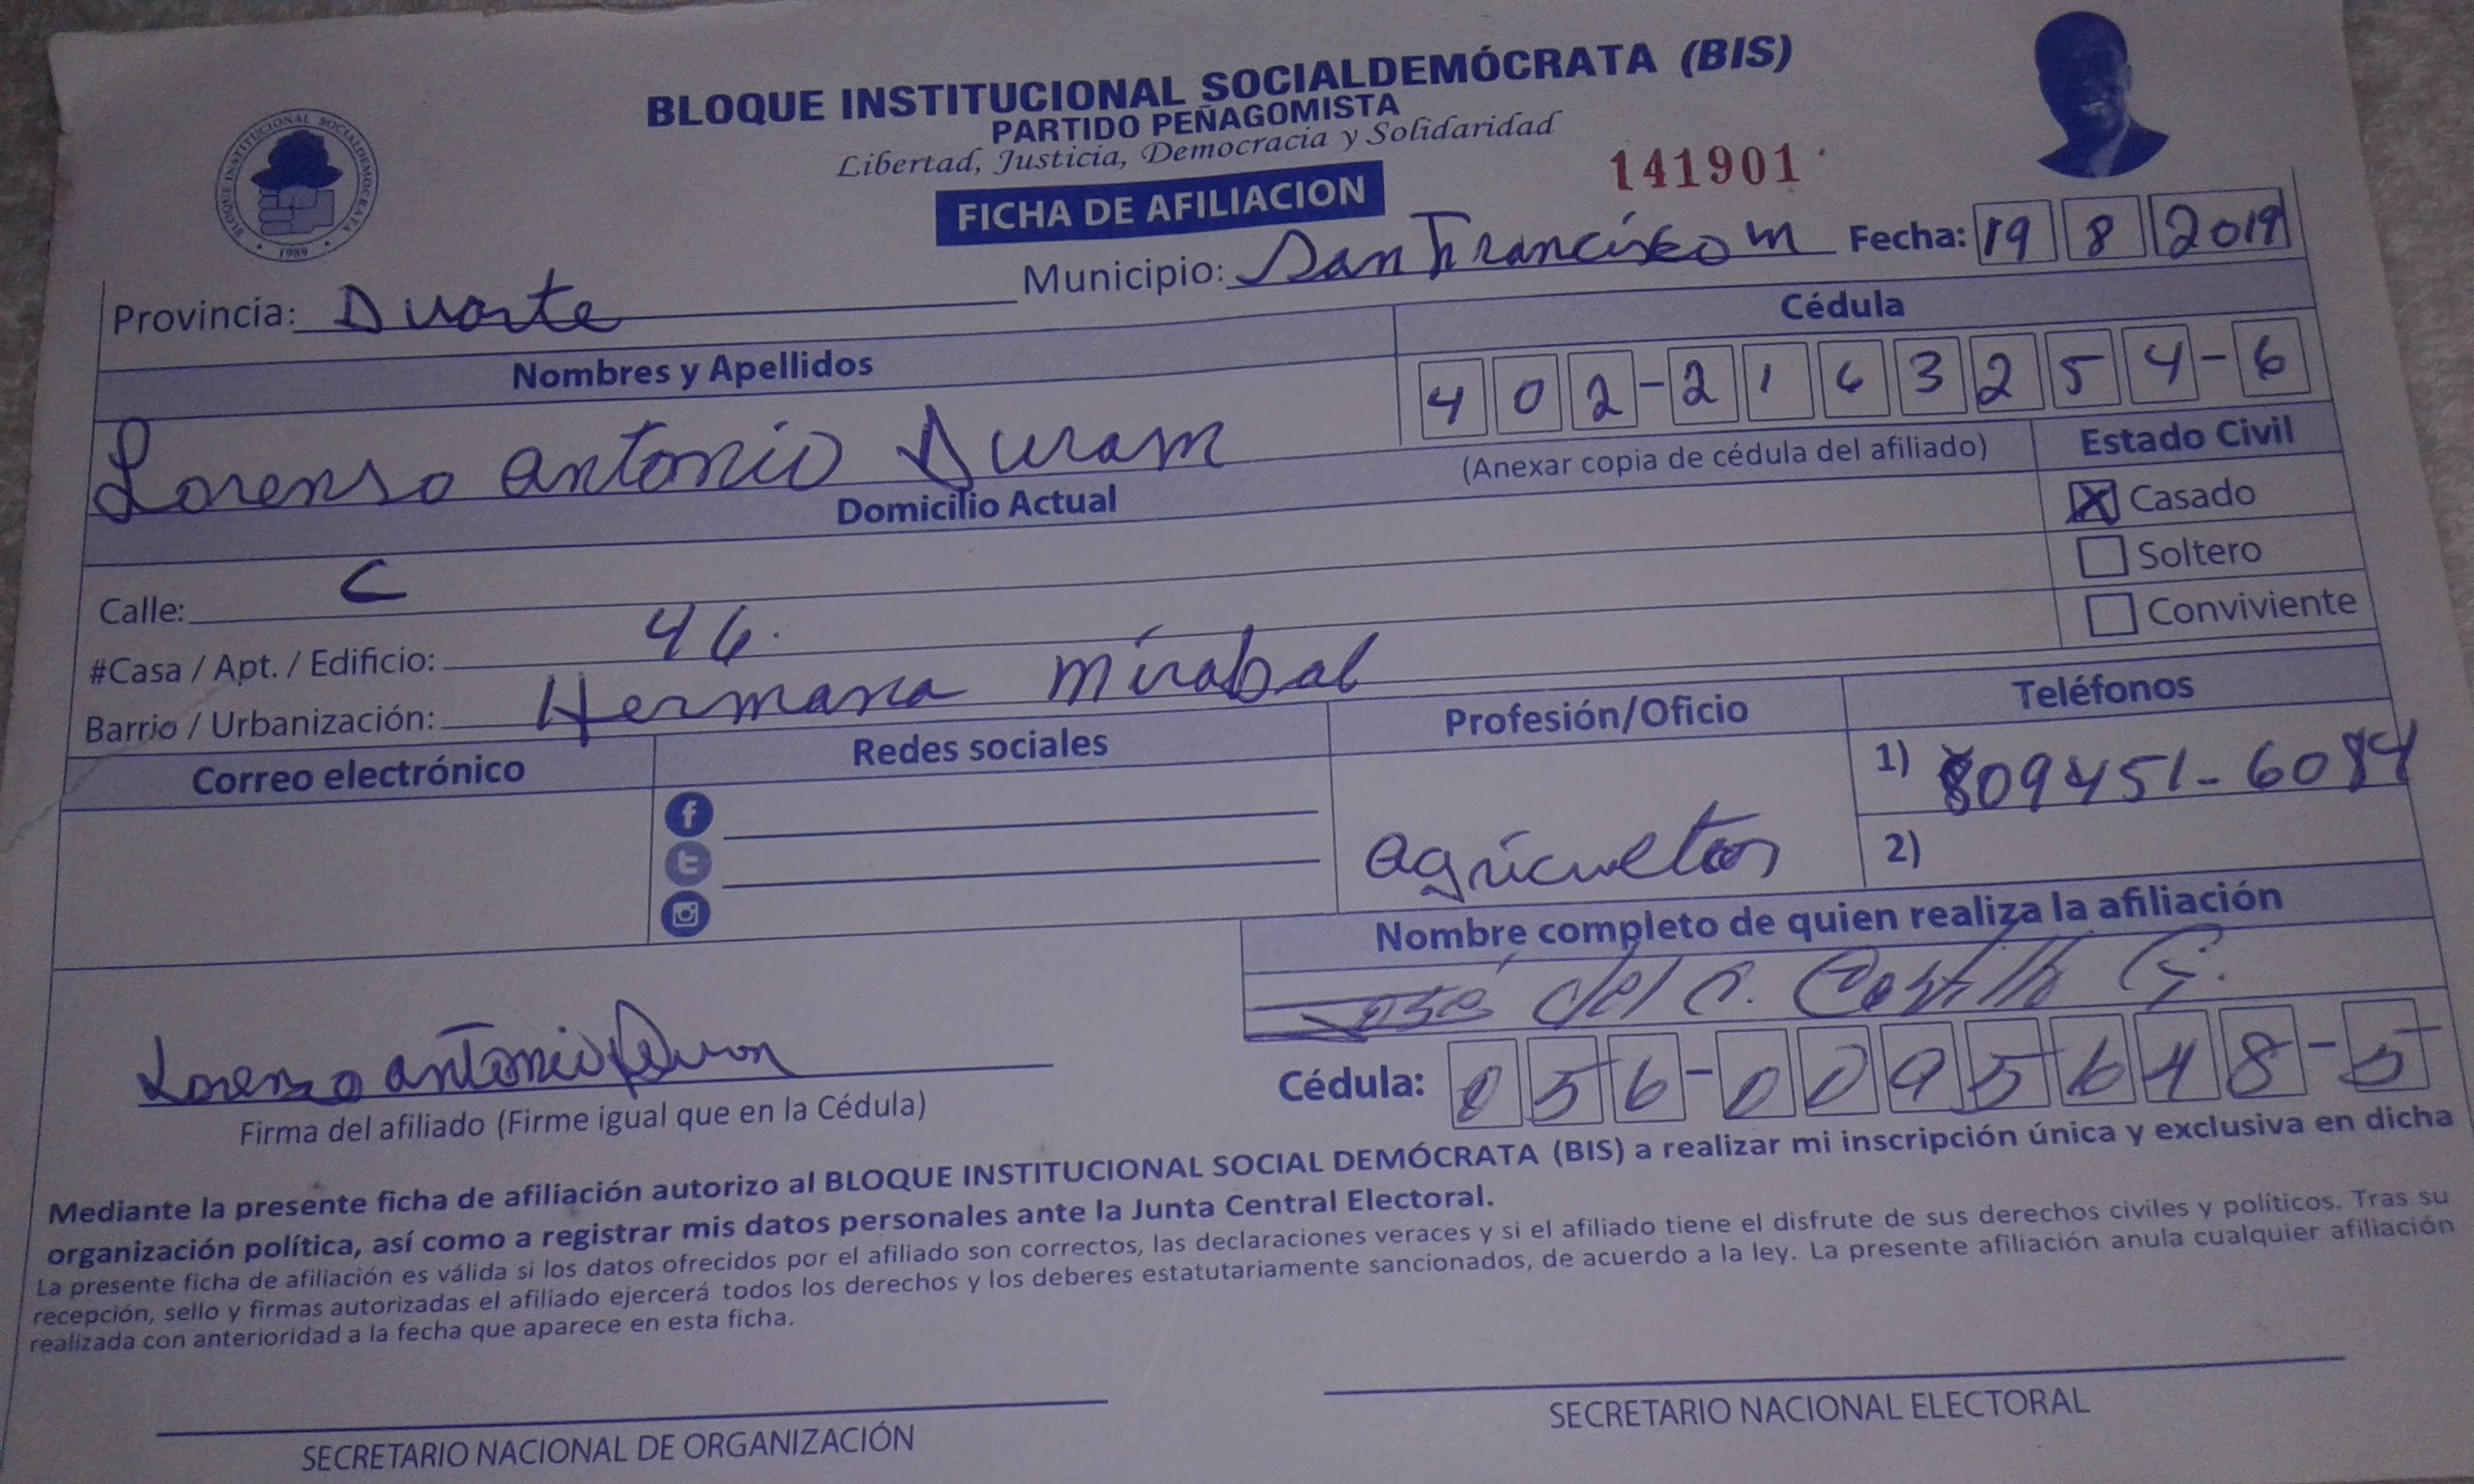 BLOQUE INSTITUCIONAL SOCIALDEMÓCRATA (BIS)
PARTIDO PEÑAGOMISTA
Libertad, Justicia, Democracia y Solidaridad
BLOQUE INSTITUCIONAL SOCIALDEMOCRATA
• 1989 •
141901
FICHA DE AFILIACION
Provincia: Duarte Municipio: San Francisco m Fecha: 19 8 2019
Nombres y Apellidos Cédula
Lorenso antonio Duram 402-2163254-6
(Anexar copia de cédula del afiliado) Estado Civil
Domicilio Actual
X Casado
Soltero
Conviviente
Calle: C
#Casa / Apt. / Edificio: 46.
Barrio / Urbanización: Hermana mirabal
Correo electrónico Redes sociales Profesión/Oficio Teléfonos
1) 809451-6084
agricueltor 2)
Nombre completo de quien realiza la afiliación
José del C. Castillo G.
Lorenzo antonio Duron
Cédula: 056-0095648-5
Firma del afiliado (Firme igual que en la Cédula)
Mediante la presente ficha de afiliación autorizo al BLOQUE INSTITUCIONAL SOCIAL DEMÓCRATA (BIS) a realizar mi inscripción única y exclusiva en dicha
organización política, así como a registrar mis datos personales ante la Junta Central Electoral.
La presente ficha de afiliación es válida si los datos ofrecidos por el afiliado son correctos, las declaraciones veraces y si el afiliado tiene el disfrute de sus derechos civiles y políticos. Tras su
recepción, sello y firmas autorizadas el afiliado ejercerá todos los derechos y los deberes estatutariamente sancionados, de acuerdo a la ley. La presente afiliación anula cualquier afiliación
realizada con anterioridad a la fecha que aparece en esta ficha.
SECRETARIO NACIONAL DE ORGANIZACIÓN SECRETARIO NACIONAL ELECTORAL